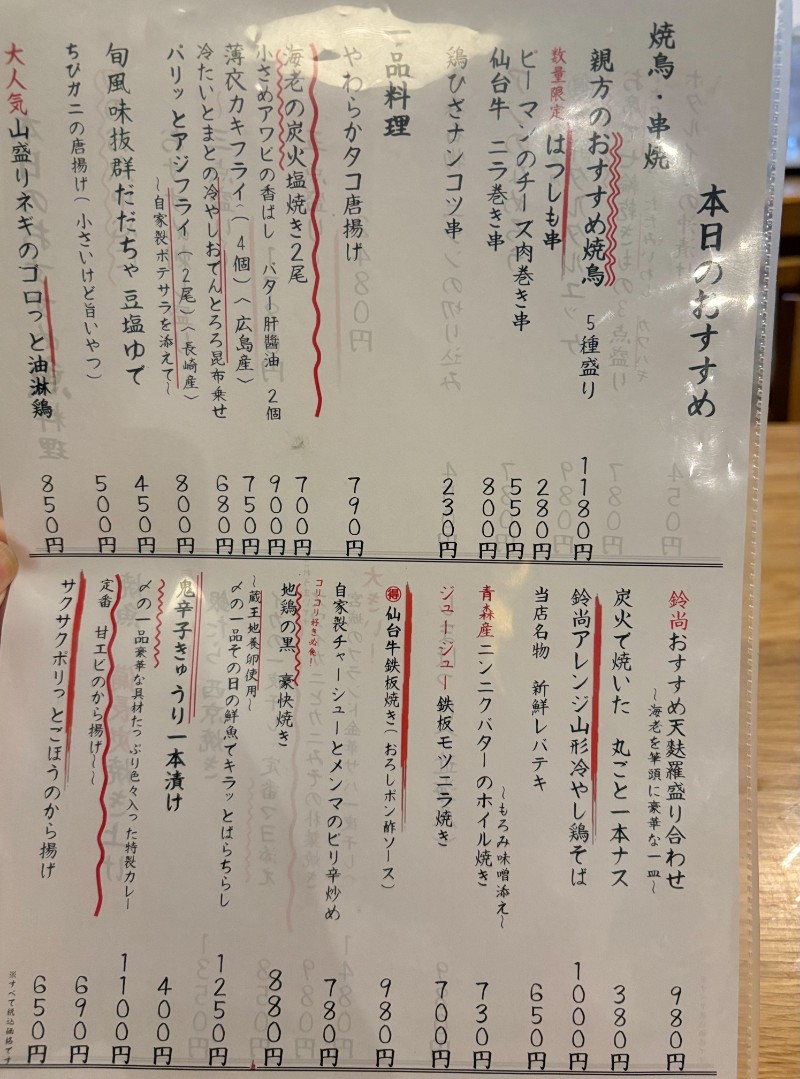 本日のおすすめ
焼鳥・串焼
親方のおすすめ焼鳥 5種盛り 1180円
数量限定 はつしも串 280円
ピーマンのチーズ肉巻き串 550円
仙台牛 ニラ巻き串 800円
鶏ひざナンコツ串 230円
一品料理
やわらかタコ唐揚げ 790円
海老の炭火塩焼き2尾 700円
小さめアワビの香ばし バター肝醬油 2個 900円
薄衣カキフライ(4個)〈広島産〉 750円
冷たいとまとの冷やしおでんとろろ昆布乗せ 680円
パリッとアジフライ(2尾)〈長崎産〉 800円
~自家製ポテサラを添えて~
旬風味抜群だだちゃ豆塩ゆで 450円
ちびカニの唐揚げ(小さいけど旨いやつ) 500円
大人気山盛りネギのゴロっと油淋鶏 850円
鈴尚おすすめ天麩羅盛り合わせ 980円
~海老を筆頭に豪華な一皿~
炭火で焼いた 丸ごと一本ナス 380円
鈴尚アレンジ山形冷やし鶏そば 1000円
当店名物 新鮮レバテキ 650円
青森産ニンニクバターのホイル焼き 730円
~もろみ味噌添え~
ジュージュー鉄板モツニラ焼き 700円
㊝仙台牛鉄板焼き(おろしポン酢ソース) 980円
自家製チャーシューとメンマのピリ辛炒め 780円
コリコリ好き必食!
地鶏の黒 豪快焼き 880円
~蔵王地養卵使用~
〆の一品その日の鮮魚でキラッとばらちらし 1250円
鬼辛子きゅうり一本漬け 400円
〆の一品豪華な具材たっぷり色々入った特製カレー 1100円
定番 甘エビのから揚げ~~ 690円
サクサクポリっとごぼうのから揚げ 650円
※すべて税込価格です